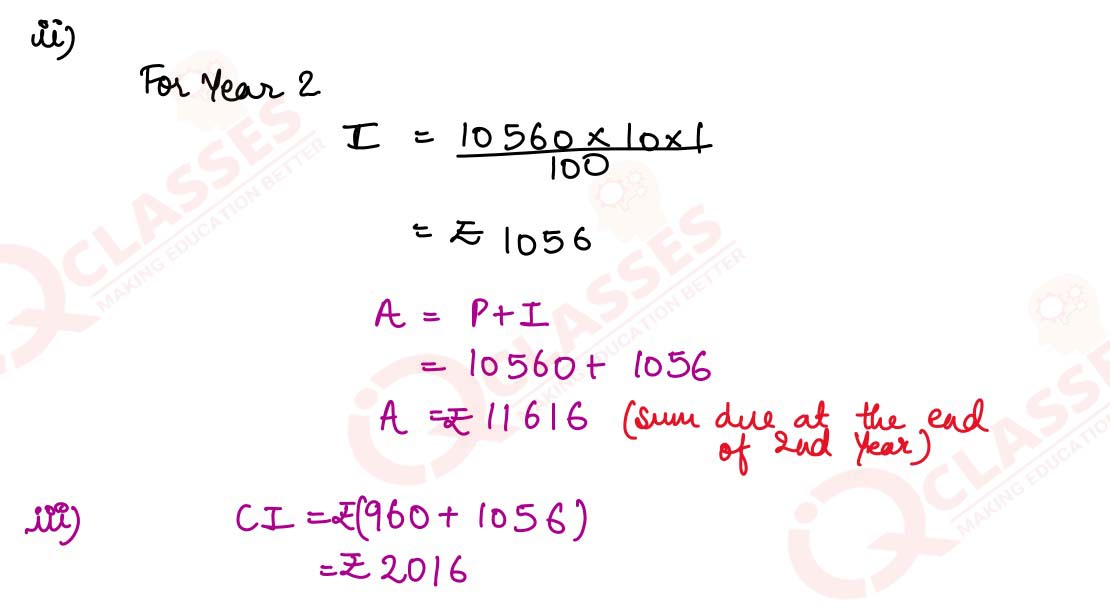 ii)
For Year 2
I = 10560 × 10 × 1
100
= ₹ 1056
A = P+I
= 10560 + 1056
A = ₹ 11616 (Sum due at the end
of 2nd Year)
iii) CI = ₹(960 + 1056)
= ₹ 2016
CLASSES
MAKING EDUCATION BETTER
CLASSES
MAKING EDUCATION BETTER
CLASSES
MAKING EDUCATION